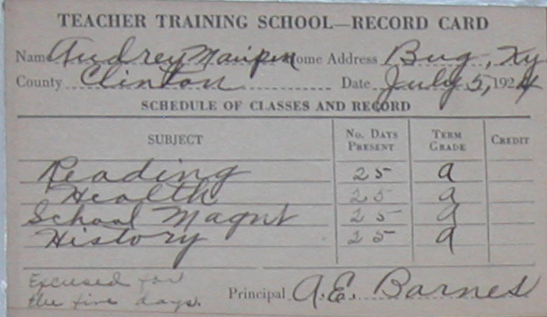 TEACHER TRAINING SCHOOL—RECORD CARD
Name Audrey Maupin Home Address Bug, Ky
County Clinton Date July 5, 1924
SCHEDULE OF CLASSES AND RECORD
SUBJECT No. DAYS PRESENT TERM GRADE CREDIT
Reading 25 a
Health 25 a
School Magnt 25 a
History 25 a
Excused for
the five days. Principal A.E. Barnes